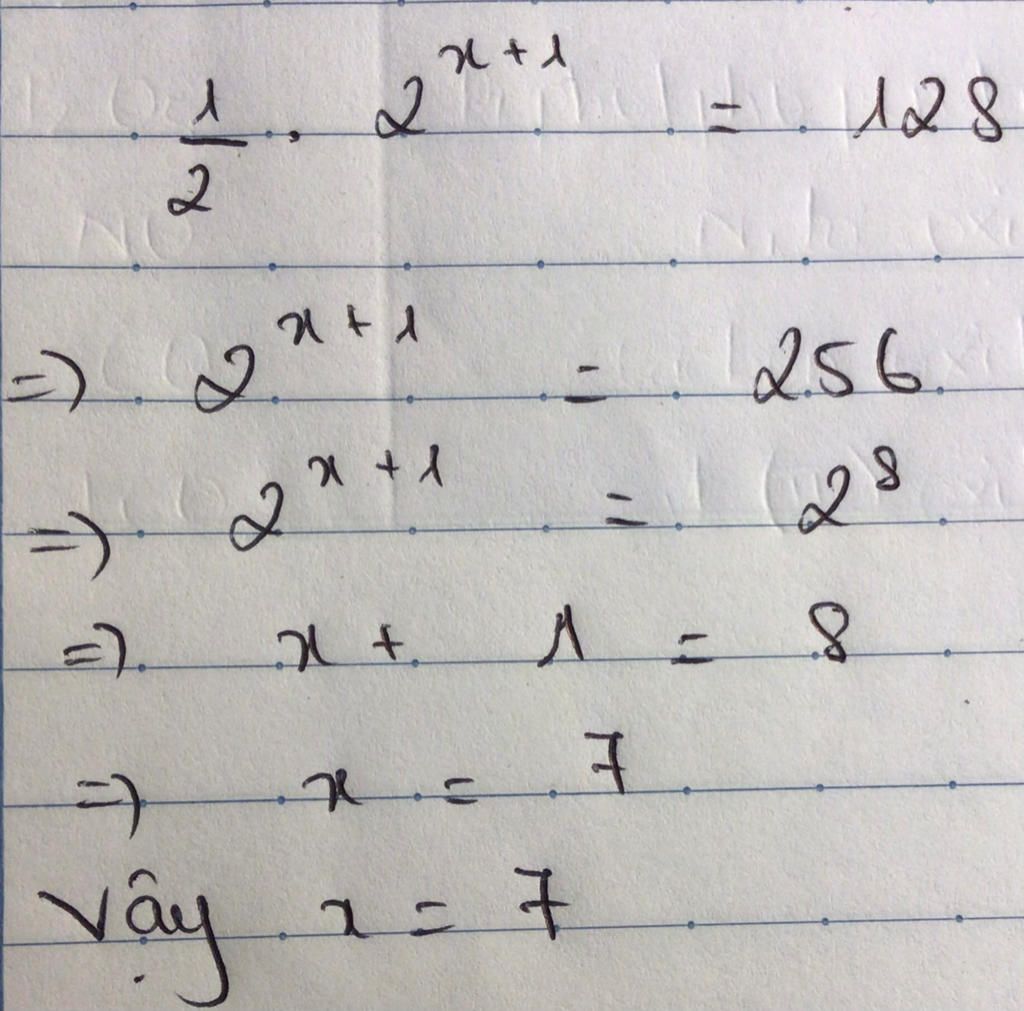 1/2 . 2^(x+1) = 128
=> 2^(x+1) = 256
=> 2^(x+1) = 2^8
=> x + 1 = 8
=> x = 7
Vậy x = 7